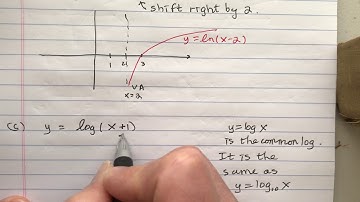 ↑ shift right by 2.
y=ln(x-2)
1 2 3
VA
x=2
(c) y = log(x+1)
y=log x
is the common log.
It is the
same as
y=log₁₀ x